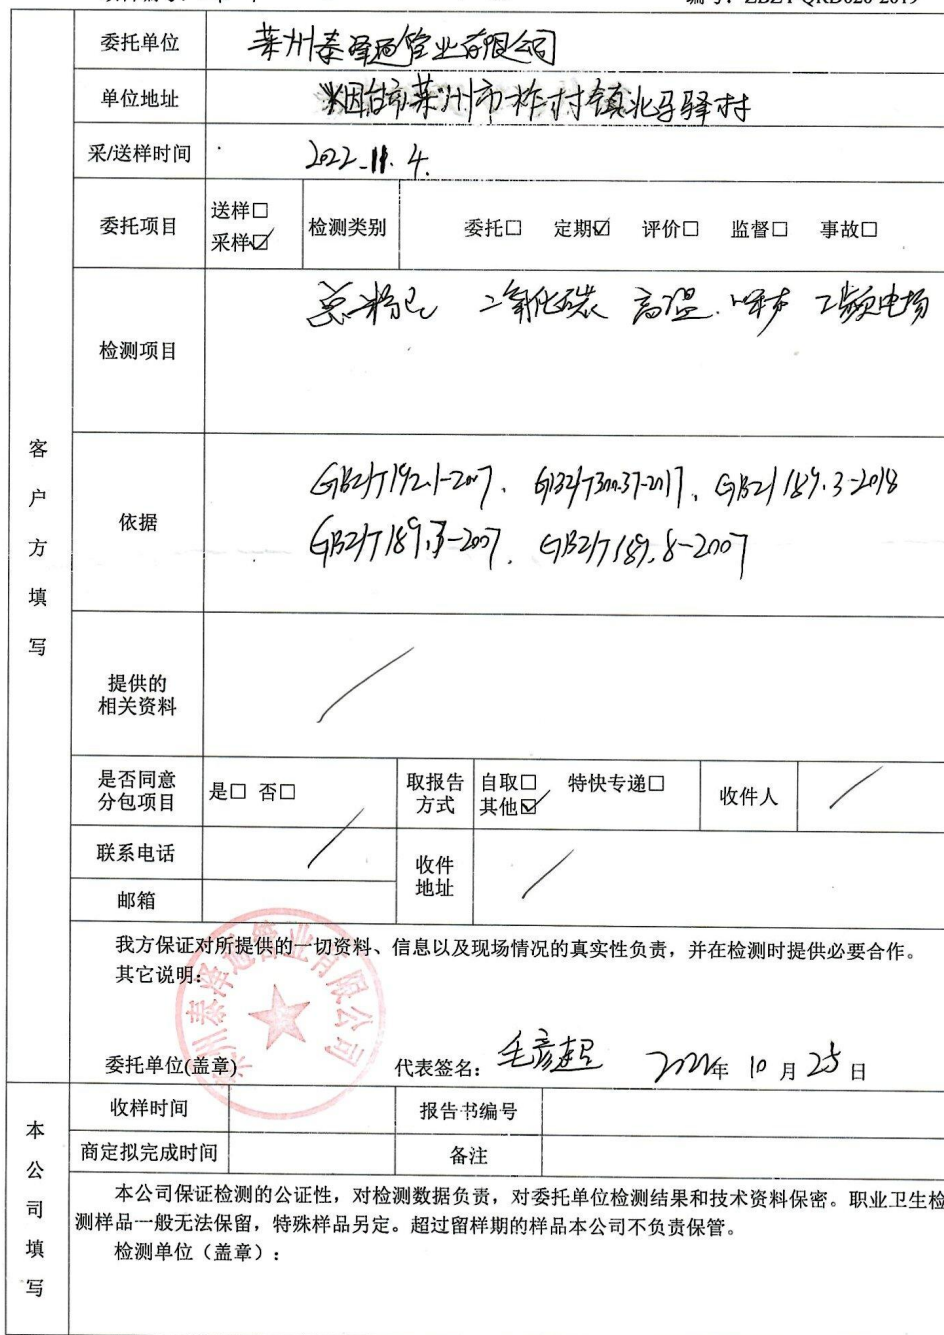 编号：ZBZY-QRD020-2019
委托单位 莱州泰泽通管业有限公司
单位地址 烟台市莱州市柞村镇北马驿村
采/送样时间 2022.11.4.
委托项目 送样☐ 采样☑ 检测类别 委托☐ 定期☑ 评价☐ 监督☐ 事故☐
检测项目 总粉尘 二氧化碳 高温 噪声 工频电场
客户方填写
依据 GBZ/T192.1-2007、GBZ/T300.37-2017、GBZ/189.3-2018
GBZ/T189.7-2007、GBZ/T189.8-2007
提供的
相关资料 /
是否同意
分包项目 是☐ 否☐ 取报告
方式 自取☐ 特快专递☐
其他☑ 收件人 /
联系电话 / 收件
地址 /
邮箱
我方保证对所提供的一切资料、信息以及现场情况的真实性负责，并在检测时提供必要合作。
其它说明：
莱州泰泽通管业有限公司
委托单位(盖章) 代表签名：毛彦超 2022年 10 月 25 日
本公司填写
收样时间 报告书编号
商定拟完成时间 备注
本公司保证检测的公证性，对检测数据负责，对委托单位检测结果和技术资料保密。职业卫生检
测样品一般无法保留，特殊样品另定。超过留样期的样品本公司不负责保管。
检测单位（盖章）：